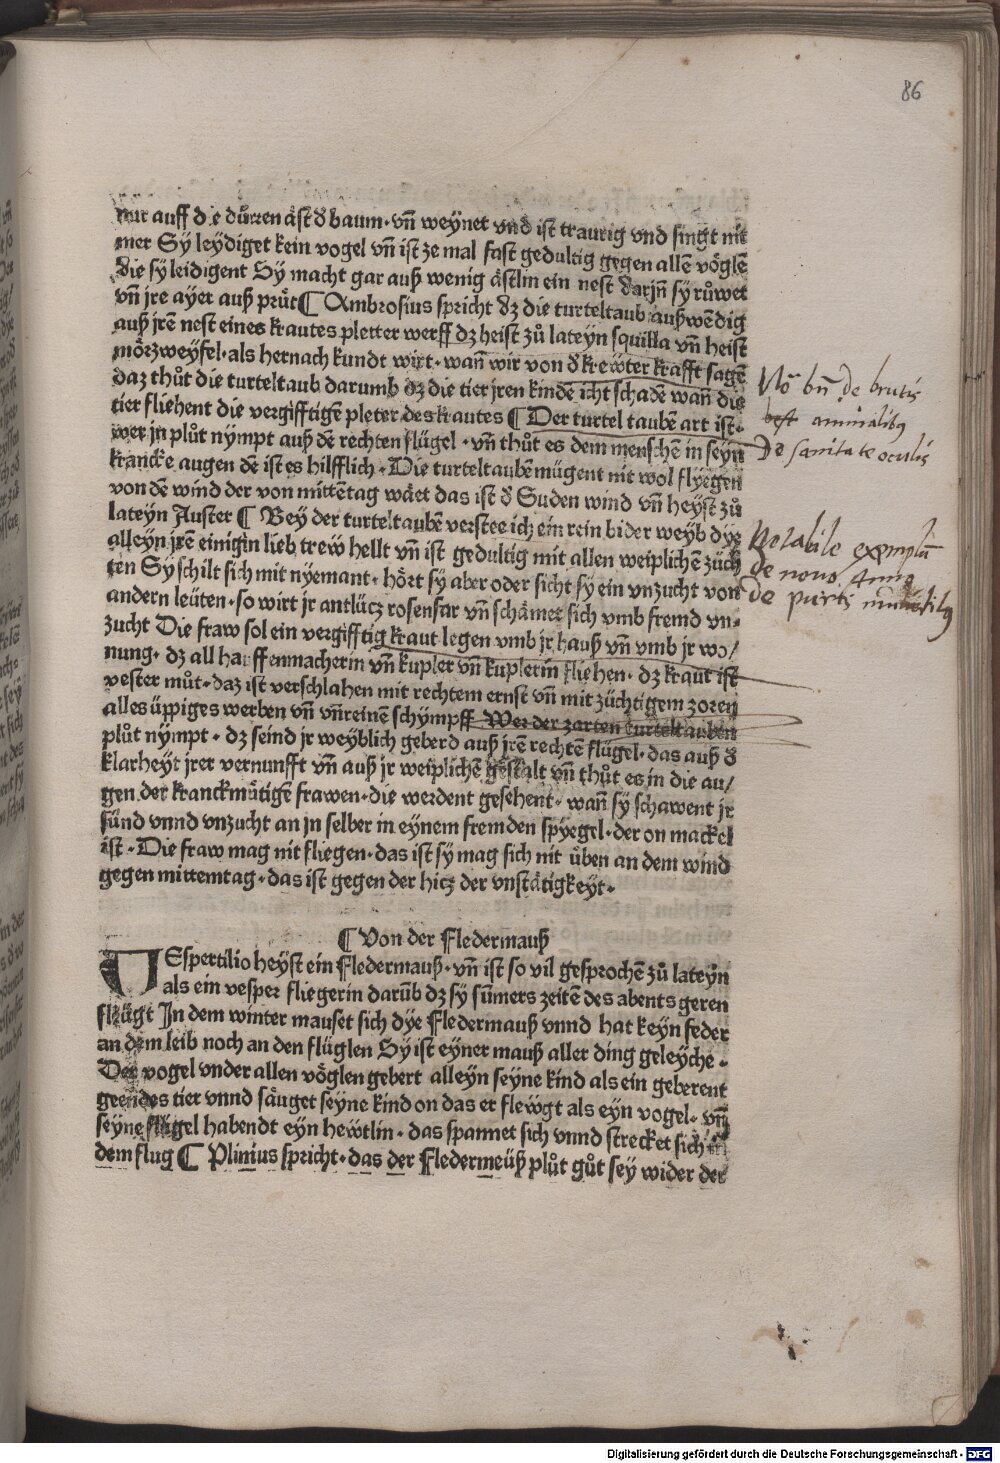 86
nur auff die dürren äst d̕ baum · vñ weynet vnd ist traurig vnd singt nit
mer Sy leydiget kein vogel vñ ist ze mal fast gedultig gegen allẽ vöglẽ
die sy leidigent Sy macht gar auß wenig ästlin ein nest darjñ sy růwet
vñ jre ayer auß prüt ¶ Ambrosius spricht dz die turteltaub außwẽdig
auß jrẽ nest eines krautes pletter werff dz heist zů lateyn squilla vñ heist
mörzweyfel · als hernach kundt wirt · wañ wir von d̕ krewter krafft sagẽ
daz thůt die turteltaub darumb dz die tier jren kindẽ icht schadẽ wañ die
tier fliehent die vergifftigen pleter des krautes ¶ Der turtel taubẽ art ist ·
wer jn plůt nympt auß dẽ rechten flügel · vñ thůt es dem menschẽ in seyn
krancke augen dẽ ist es hilfflich · Die turteltaubẽ mügent nit wol flyegen
von dẽ wind der von mittẽtag wäet das ist d̕ Suden wind vñ heyst zů
lateyn Auster ¶ Bey der turteltaubẽ verstee ich ein rein bider weyb dye
alleyn jrẽ einigin lieb trew hellt vñ ist gedultig mit allen weiplichẽ züch
ten Sy schilt sich mit nyemant · hört sy aber oder sicht sy ein vnzucht von
andern leüten · so wirt jr antlücz rosenfar vñ schämet sich vmb fremd vn-
zucht Die fraw sol ein vergifftig kraut legen vmb jr hauß vñ vmb jr wo/
nung · dz all harffenmacherin vñ kupler vñ kuplerin fliehen · dz kraut ist
vester můt · daz ist verschlahen mit rechtem ernst vñ mit züchtigem zoren
alles üppiges werben vñ vñreinẽ schympff Wer der zarten turteltauben
plůt nympt · dz seind jr weyblich geberd auß jrẽ rechtẽ flügel · das auß d̕
klarheyt jrer vernunfft vñ auß jr weiplichẽ gestalt vñ thůt es in die au/
gen der kranckmütigẽ frawen · die werdent gesehent · wañ sy schawent jr
sünd vnnd vnzucht an jn selber in eynem fremden spyegel · der on mackel
ist · Die fraw mag nit fliegen · das ist sy mag sich nit üben an dem wind
gegen mittemtag · das ist gegen der hicz der vnstätigkeyt ·
¶ Von der Fledermauß
VEspertilio heyst ein Fledermauß · vñ ist so vil gesprochẽ zů lateyn
als ein vesper fliegerin darũb dz sy sũmers zeitẽ des abents geren
fleügt In dem winter mauset sich dye Fledermauß vnnd hat keyn feder
an dem leib noch an den flüglen Sy ist eyner mauß aller ding geleyche ·
Der vogel vnder allen vöglen gebert alleyn seyne kind als ein geberent
geendes tier vnnd säuget seyne kind on das er flewgt als eyn vogel · vñ
seyne flügel habendt eyn hewtlin · das spannet sich vnnd strecket sich in
dem flug ¶ Plinius spricht · das der Fledermeüß plůt gůt sey wider der
de brutis
animalibus
De sanitate oculis
Notabile exemplũ
de
de
Digitalisierung gefördert durch die Deutsche Forschungsgemeinschaft - DFG